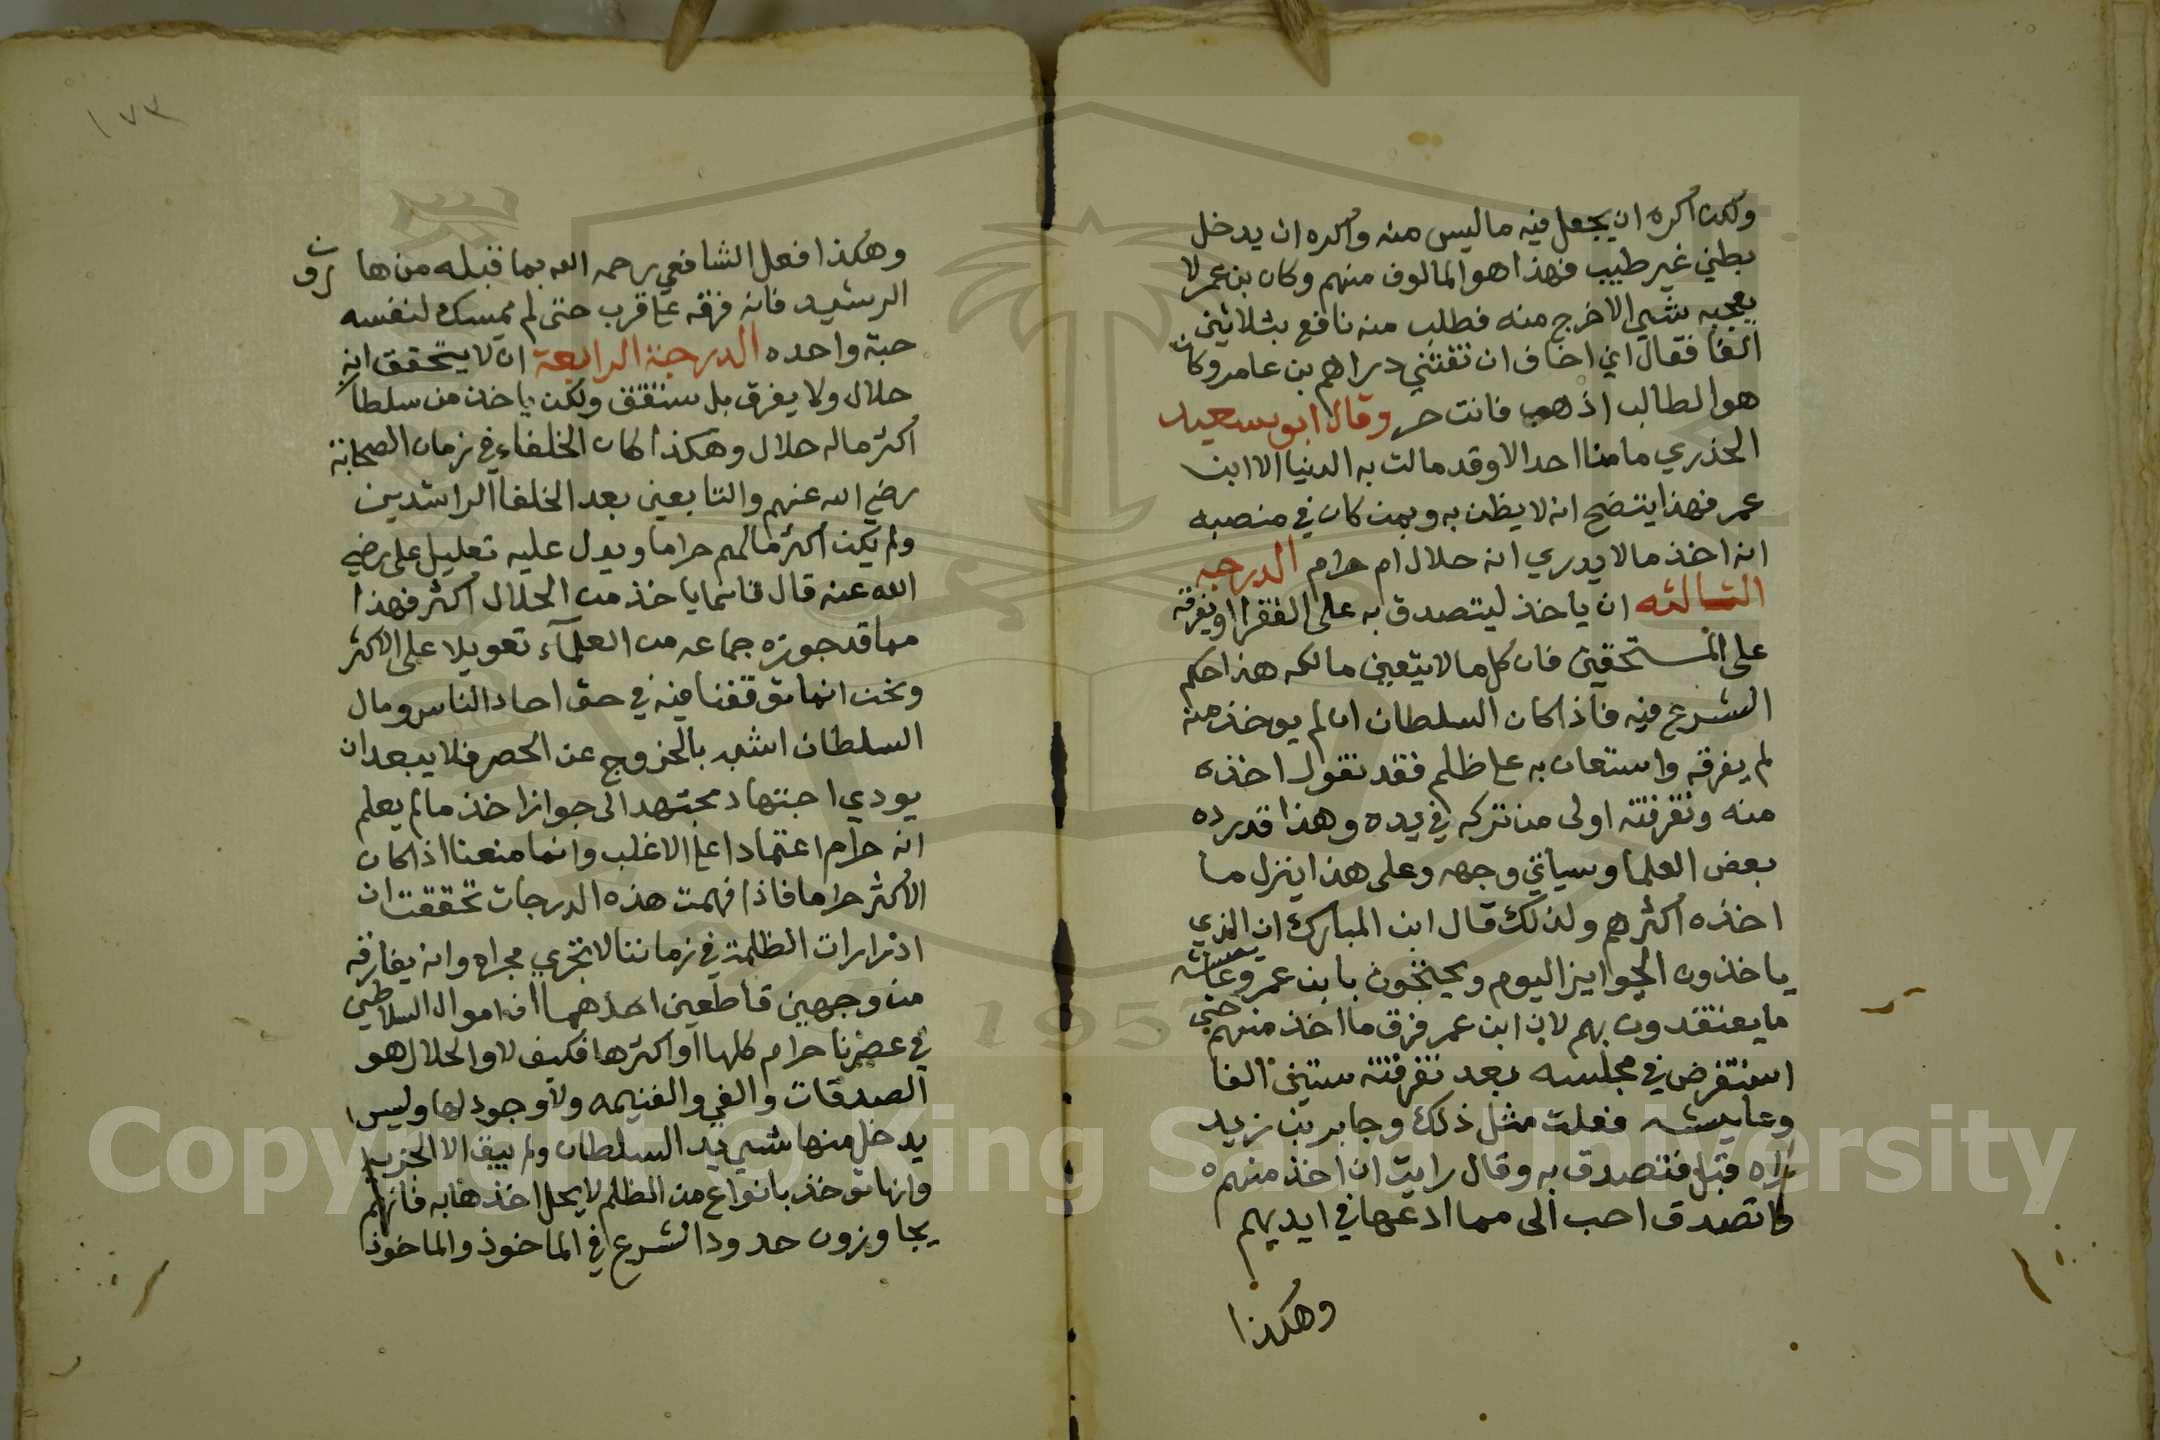 ولكن اكره ان يجعل فيه ماليس منه واكره ان يدخل
بطني غير طيب فهذا هو المالوف منهم وكان بن عمر لا
يعجبه شي الاخرج منه فطلب منه نافع بثلاثين
الفا فقال اني اخاف ان تفتنني دراهم بن عامر وكان
هو الطالب اذهب فانت حر وقال ابو سعيد
الخذري مامنا احد الا وقد مالت به الدنيا الا ابن
عمر فهذا يتضح انه لا يظن به وبمن كان في منصبه
انه اخذ مالا يدري انه حلال ام حرام الدرجه
الثالثه ان ياخذ ليتصدق به على الفقرا او يفرقه
على المستحقين فان كل مالا يتعين مالكه هذا حكم
الشرع فيه فاذا كان السلطان ان لم يوخذ منه
لم يفرقه واستعان به على ظلم فقد نقول اخذه
منه وتفرقته اولى من تركه في يده وهذا قد رده
بعض العلما وسياتي وجهه وعلى هذا ينزل ما
اخذه اكثرهم ولذلك قال ابن المبارك ان الذي
ياخذون الجوايز اليوم ويحتجون بابن عمر وعايشه
مايعتقدون بهم لان ابن عمر فرق ما اخذ منهم حتى
استقرض في مجلسه بعد تفرقته ستين الفا
وعايشه فعلت مثل ذلك وجابر بن زيد
جاه قبل فتصدق به وقال رايت ان اخذ منهم
واتصدق احب الى مما ادعها في ايديهم
وهكذا
١٧٣
وهكذا فعل الشافعي رحمه الله بما قبله من هارون
الرشيد فانه فرقه على قرب حتى لم يمسك لنفسه
حبة واحده الدرجة الرابعة ان لا يتحقق انه
حلال ولا يفرق بل ستفق ولكن ياخذ من سلطا
اكثر ماله حلال وهكذا كان الخلفاء في زمان الصحابة
رضي الله عنهم والتابعين بعد الخلفا الراشدين
ولم يكن اكثر مالهم حراما ويدل عليه تعليل على رضي
الله عنه قال فانما ياخذ من الحلال اكثر فهذا
مما قد جوزه جماعه من العلمآء تعويلا على الاكثر
ونحن انما توقفنا فيه في حق احاد الناس ومال
السلطان اشبه بالخروج عن الحصر فلا يبعد ان
يودي اجتهاد مجتهد الى جواز اخذ مالم يعلم
انه حرام اعتمادا على الاغلب وانما منعنا اذا كان
الاكثر حراما فاذا فهمت هذه الدرجات تحققت ان
ادرارات الظلمة في زماننا لا تجري مجراه وانه يفارقه
من وجهين قاطعين احدهما ان اموال السلاطين
في عصرنا حرام كلها او اكثرها فكيف لا والحلال هو
الصدقات والفي والغنيمه ولا وجود لها وليس
يدخل منها شي يد السلطان ولم يبق الا الجزيه
وانها توخذ بانواع من الظلم لا يحل اخذها به فانهم
يجاوزون حدود الشرع في الماخوذ والماخوذ
Copyright © King Saud University
1957